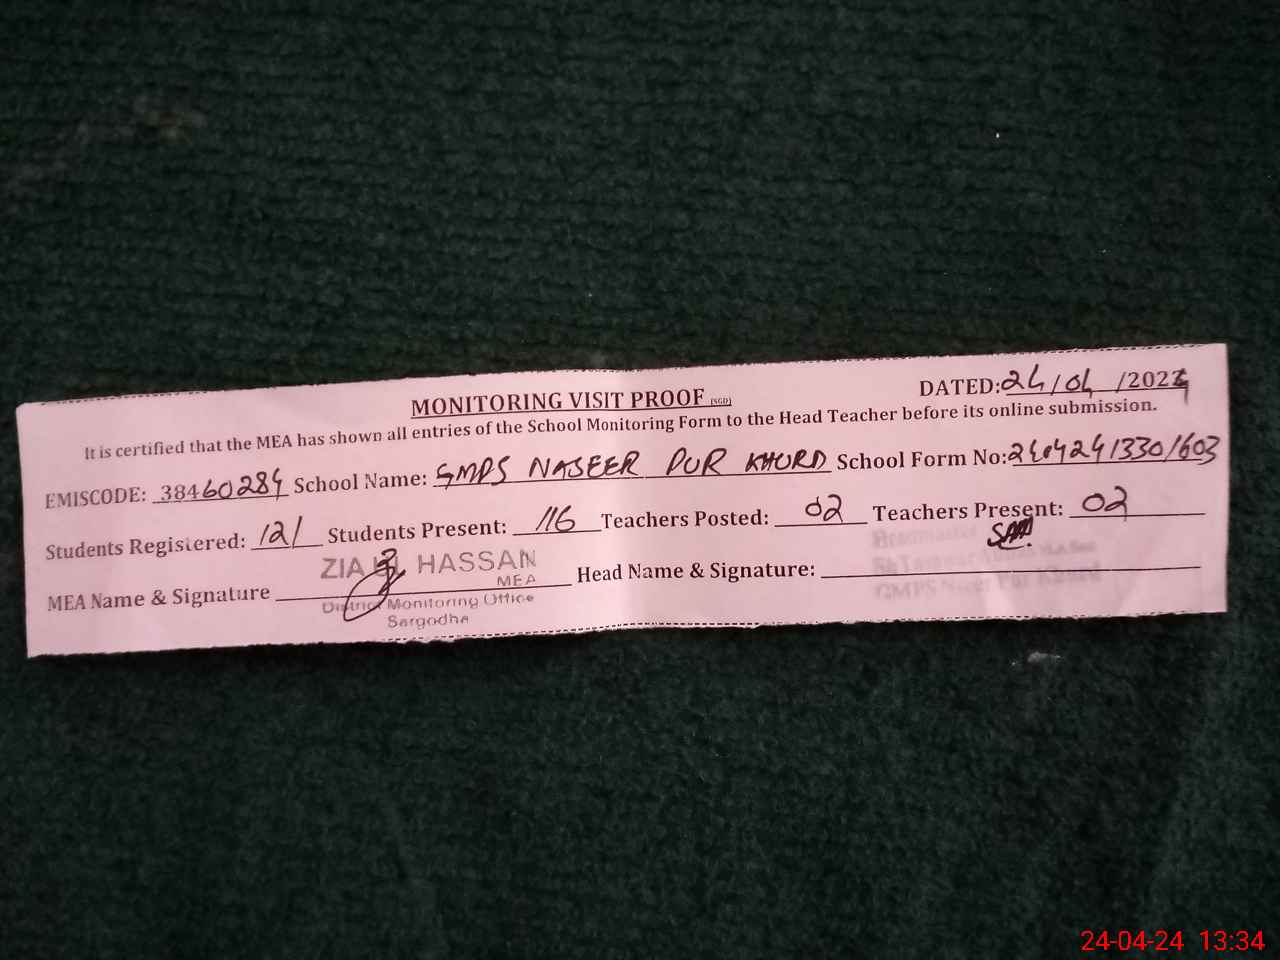 MONITORING VISIT PROOF (SGD)
DATED: 24/04/2024
It is certified that the MEA has shown all entries of the School Monitoring Form to the Head Teacher before its online submission.
EMISCODE: 38460284 School Name: GMPS NASEER PUR KHURD School Form No: 24042413301603
Students Registered: 121 Students Present: 116 Teachers Posted: 02 Teachers Present: 02
ZIA UL HASSAN
MEA
MEA Name & Signature Head Name & Signature:
District Monitoring Office
Sargodha
24-04-24 13:34